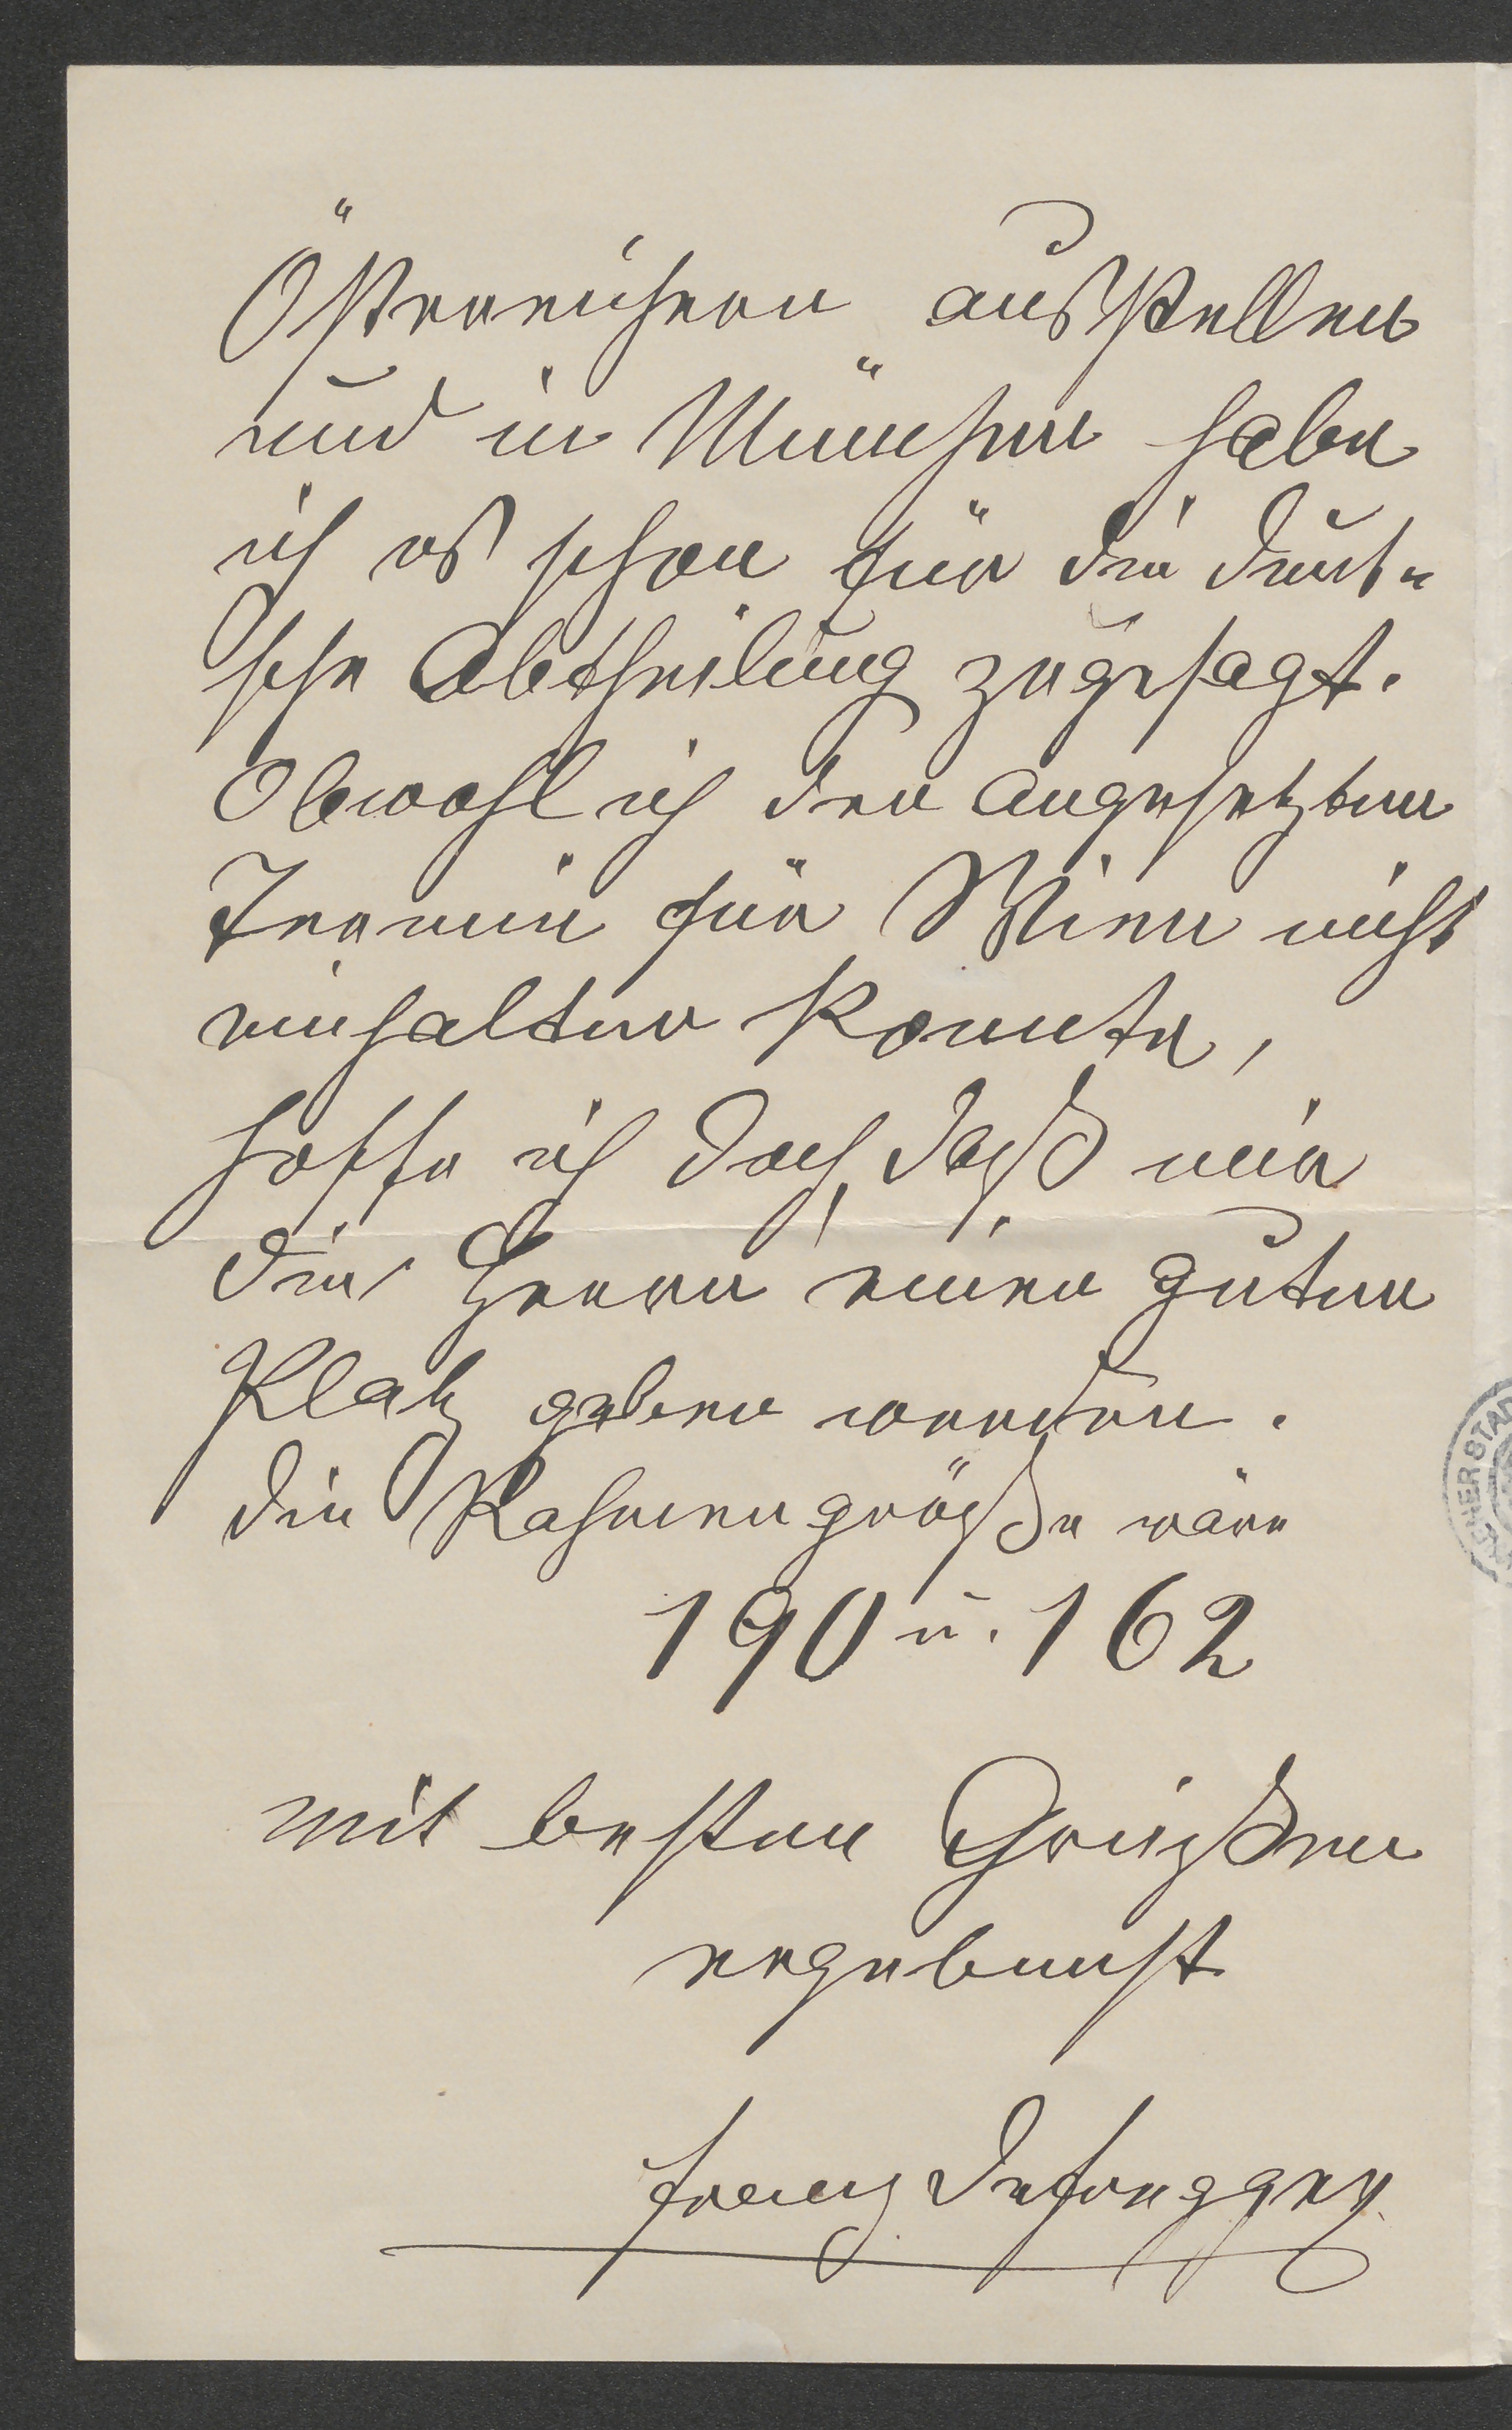 Österreichern ausstellen
und in München habe
ich es schon für die deut-
sche Abtheilung zugesagt.
Obwohl ich den angesetzten
Termin für Wien nicht
einhalten konnte,
hoffe ich doch, daß mir
die Herrn einen guten
Platz geben werden.
die Rahmengröße wäre
190 u. 162
mit besten Grüßen
ergebenst
Franz Defregger